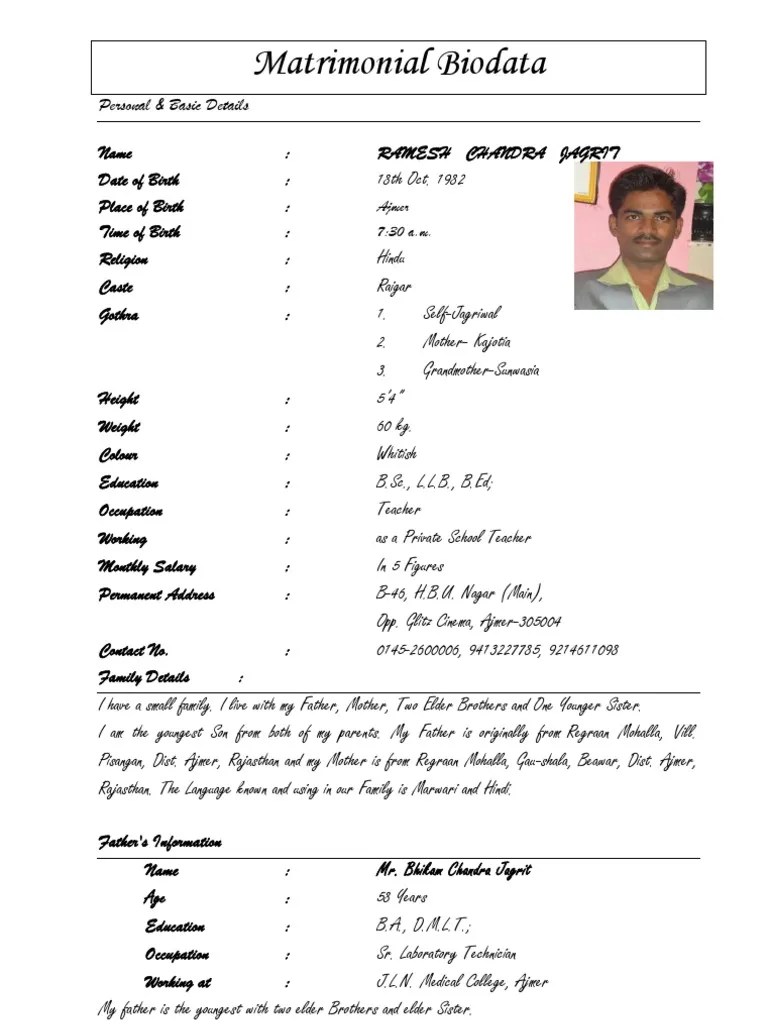 Matrimonial Biodata
Personal & Basic Details
Name : RAMESH CHANDRA JAGRIT
Date of Birth : 18th Oct. 1982
Place of Birth : Ajmer
Time of Birth : 7:30 a.m.
Religion : Hindu
Caste : Raigar
Gothra : 1. Self-Jagriwal
2. Mother- Kajotia
3. Grandmother-Sunwasia
Height : 5'4"
Weight : 60 kg.
Colour : Whitish
Education : B.Sc., L.L.B., B.Ed;
Occupation : Teacher
Working : as a Private School Teacher
Monthly Salary : In 5 Figures
Permanent Address : B-46, H.B.U. Nagar (Main),
Opp. Glitz Cinema, Ajmer-305004
Contact No. : 0145-2600006, 9413227785, 9214611098
Family Details :
I have a small family. I live with my Father, Mother, Two Elder Brothers and One Younger Sister.
I am the youngest Son from both of my parents. My Father is originally from Regraan Mohalla, Vill.
Pisangan, Dist. Ajmer, Rajasthan and my Mother is from Regraan Mohalla, Gau-shala, Beawar, Dist. Ajmer,
Rajasthan. The Language known and using in our Family is Marwari and Hindi.
Father's Information
Name : Mr. Bhikam Chandra Jagrit
Age : 58 Years
Education : B.A., D.M.L.T.;
Occupation : Sr. Laboratory Technician
Working at : J.L.N. Medical College, Ajmer
My father is the youngest with two elder Brothers and elder Sister.